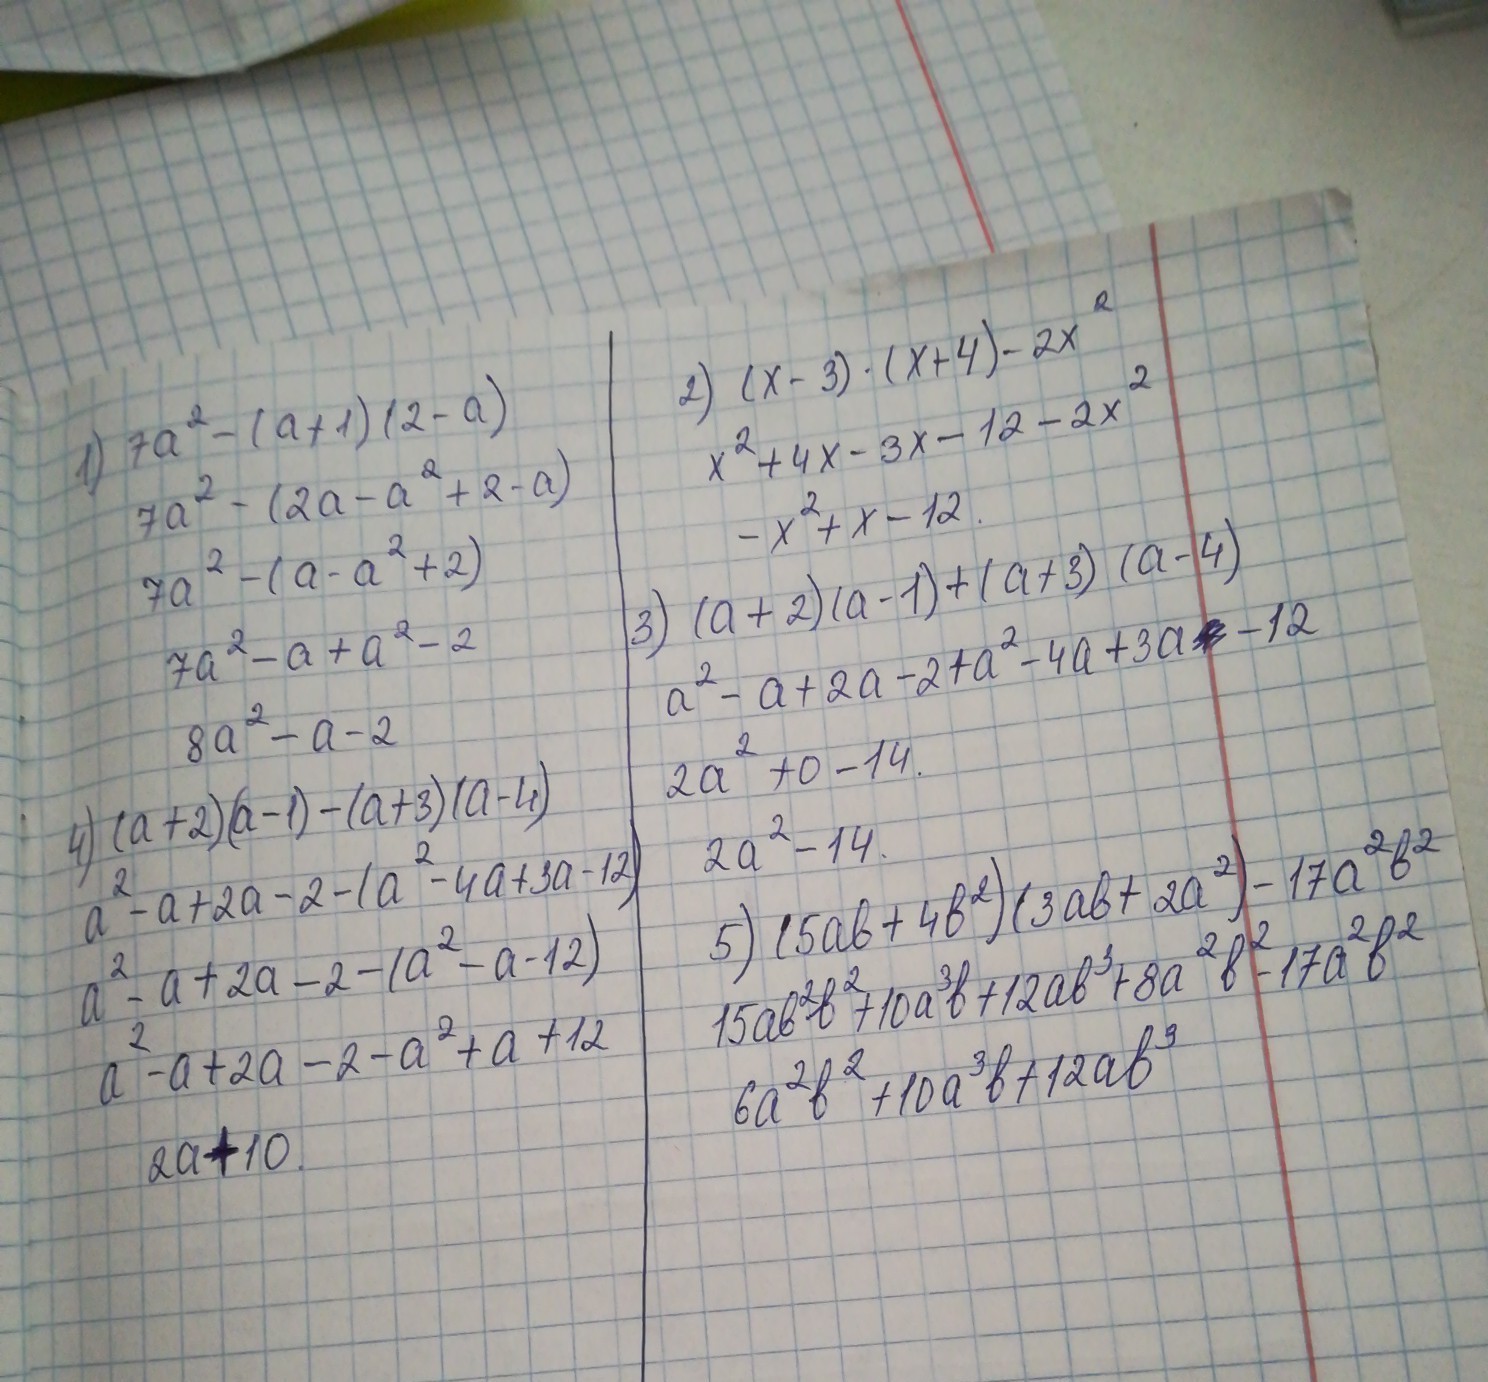 1) 7a² - (a+1)(2-a)
7a² - (2a - a² + 2 - a)
7a² - (a - a² + 2)
7a² - a + a² - 2
8a² - a - 2
4) (a+2)(a-1) - (a+3)(a-4)
a² - a + 2a - 2 - (a² - 4a + 3a - 12)
a² - a + 2a - 2 - (a² - a - 12)
a² - a + 2a - 2 - a² + a + 12
2a + 10.
2) (x-3)·(x+4) - 2x²
x² + 4x - 3x - 12 - 2x²
-x² + x - 12.
3) (a+2)(a-1) + (a+3)(a-4)
a² - a + 2a - 2 + a² - 4a + 3a - 12
2a² + 0 - 14.
2a² - 14.
5) (5ab + 4b²)(3ab + 2a²) - 17a²b²
15ab²b² + 10a³b + 12ab³ + 8a²b² - 17a²b²
6a²b² + 10a³b + 12ab³